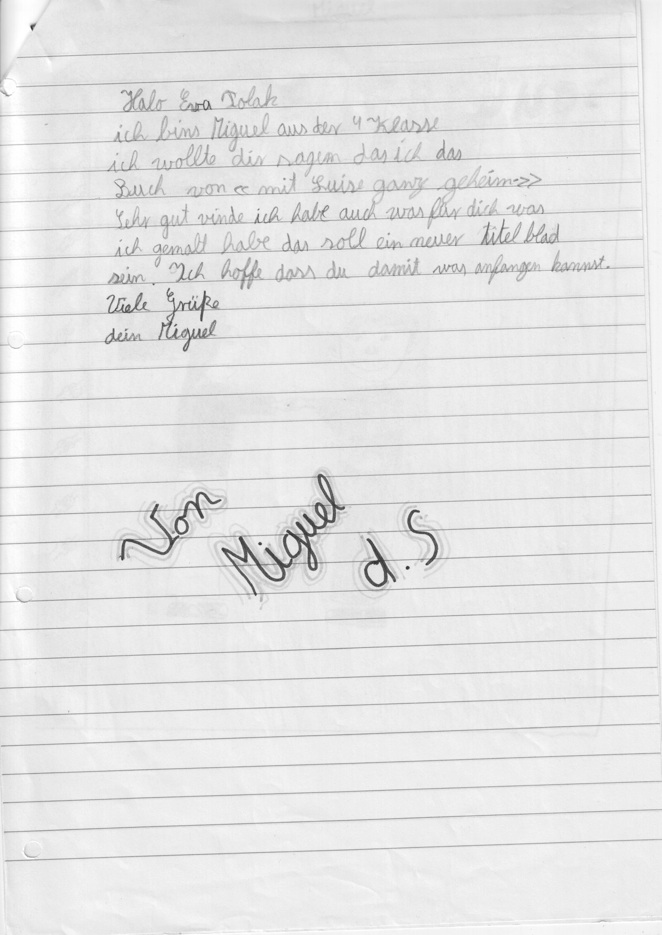 Halo Ewa Polak
ich bins Miguel aus der 4 Klasse
ich wollte dir sagen das ich das
Buch von << mit Luise ganz geheim>>
Sehr gut vinde ich habe auch was für dich was
ich gemalt habe das soll ein neuer titelblad
sein. Ich hoffe dass du damit was anfangen kannst.
Viele Grüße
dein Miguel
Von
Miguel
d.S